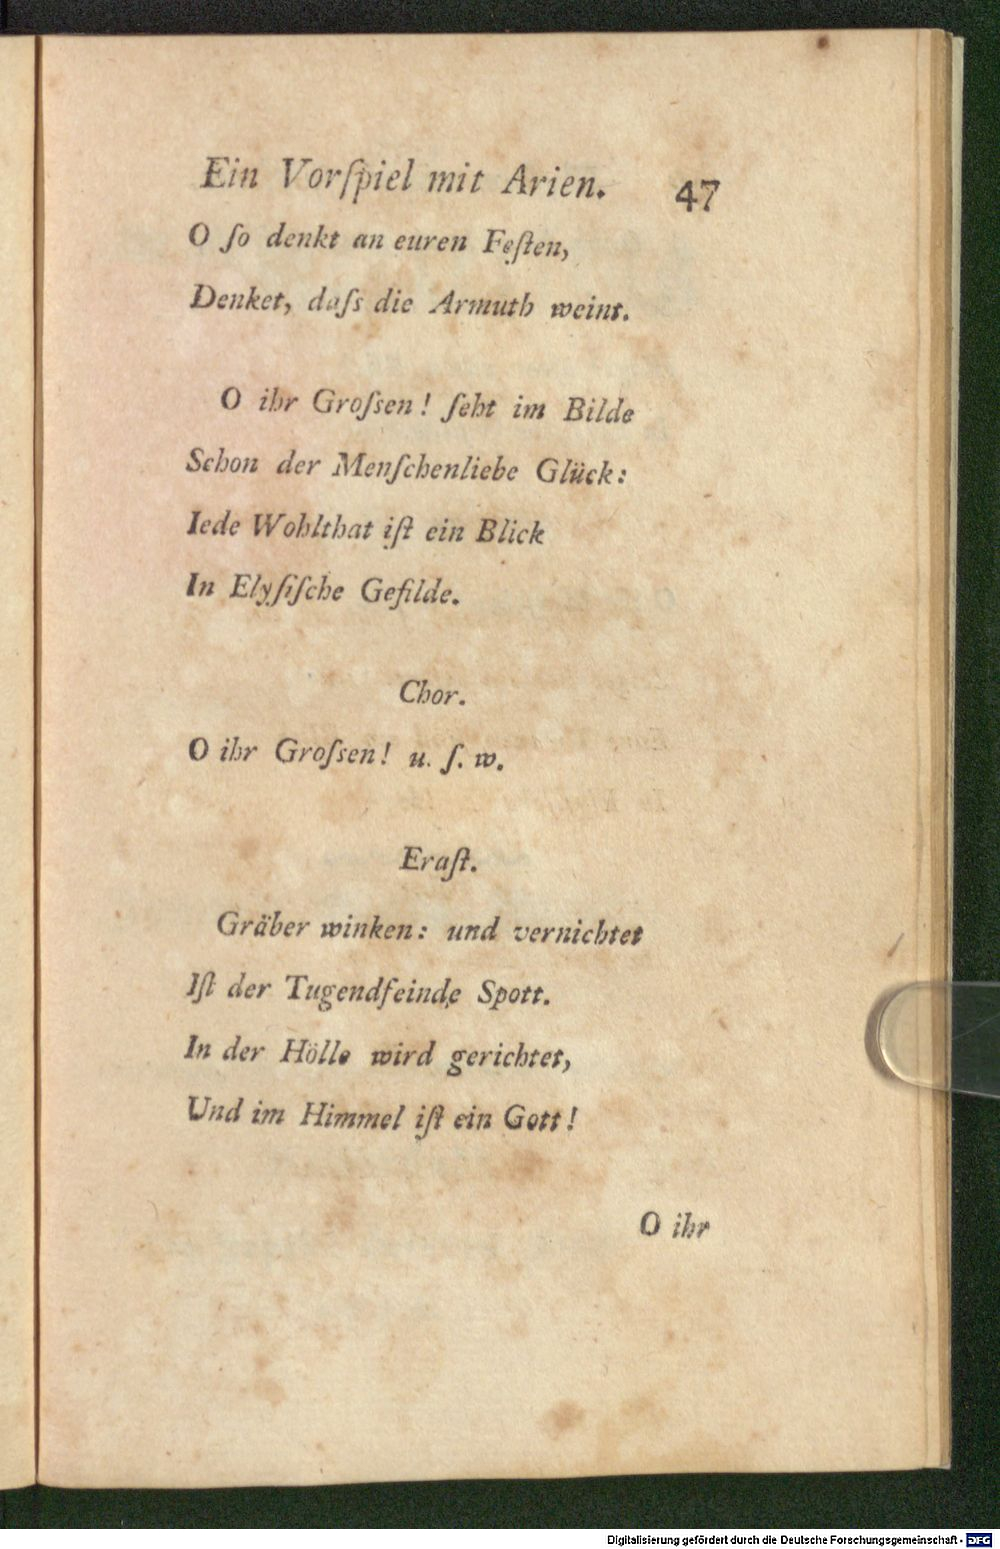 Ein Vorſpiel mit Arien. 47
O ſo denkt an euren Feſten,
Denket, daſs die Armuth weint.
O ihr Groſsen! ſeht im Bilde
Schon der Menſchenliebe Glück:
Iede Wohlthat iſt ein Blick
In Elyſiſche Gefilde.
Chor.
O ihr Groſsen! u. ſ. w.
Eraſt.
Gräber winken: und vernichtet
Iſt der Tugendfeinde Spott.
In der Hölle wird gerichtet,
Und im Himmel iſt ein Gott!
O ihr
Digitalisierung gefördert durch die Deutsche Forschungsgemeinschaft - DFG